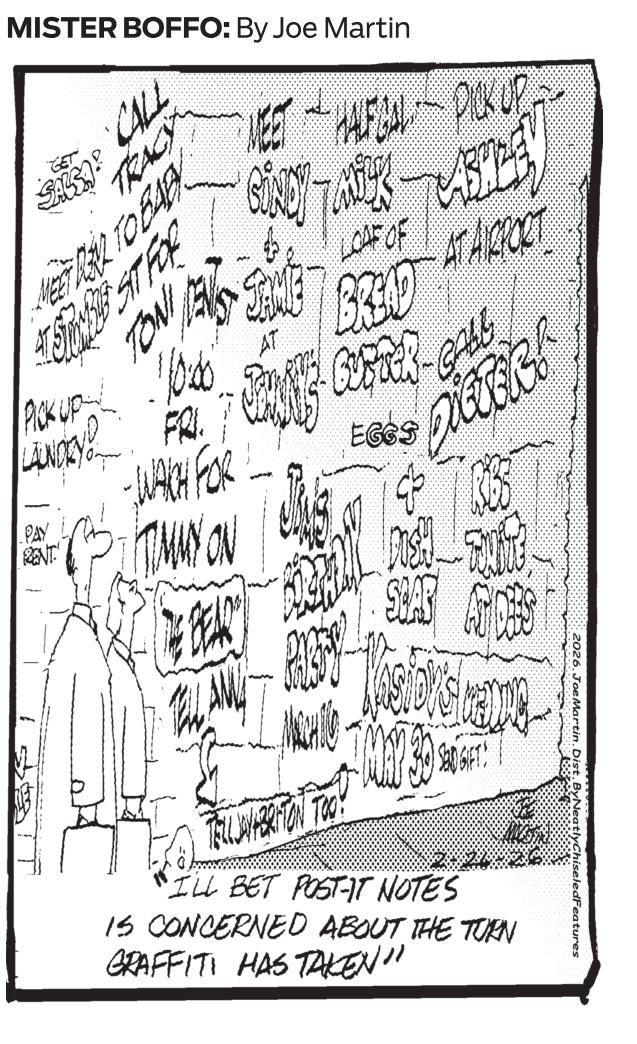 MISTER BOFFO: By Joe Martin
GET
SALSA!
MEET DEN
AT STUMBLE
PICK UP
LAUNDRY!
PAY
RENT
CALL
TRACY
TO BABY
SIT FOR
TONI
DENTIST
10:00
FRI.
WATCH FOR
TIMMY ON
"THE BEAR"
TELL ANN
TELL JAY + BRITTON TOO!
MEET
CINDY
+
JAMIE
AT
JENNY'S
JIM'S
BIRTHDAY
PARTY
MARCH 16
HALF GAL.
MILK
LOAF OF
BREAD
BUTTER
EGGS
+
DISH
SOAP
PICK UP
ASHLEY
AT AIRPORT
CALL
DIETER!
RIBS
TONITE
AT DEE'S
KASIDY'S WEDDING
MAY 30 SEND GIFT!
JOE
MARTIN
2-26-26
2026 JoeMartin Dist. ByNeatlyChiseledFeatures
"I'LL BET POST-IT NOTES
IS CONCERNED ABOUT THE TURN
GRAFFITI HAS TAKEN"